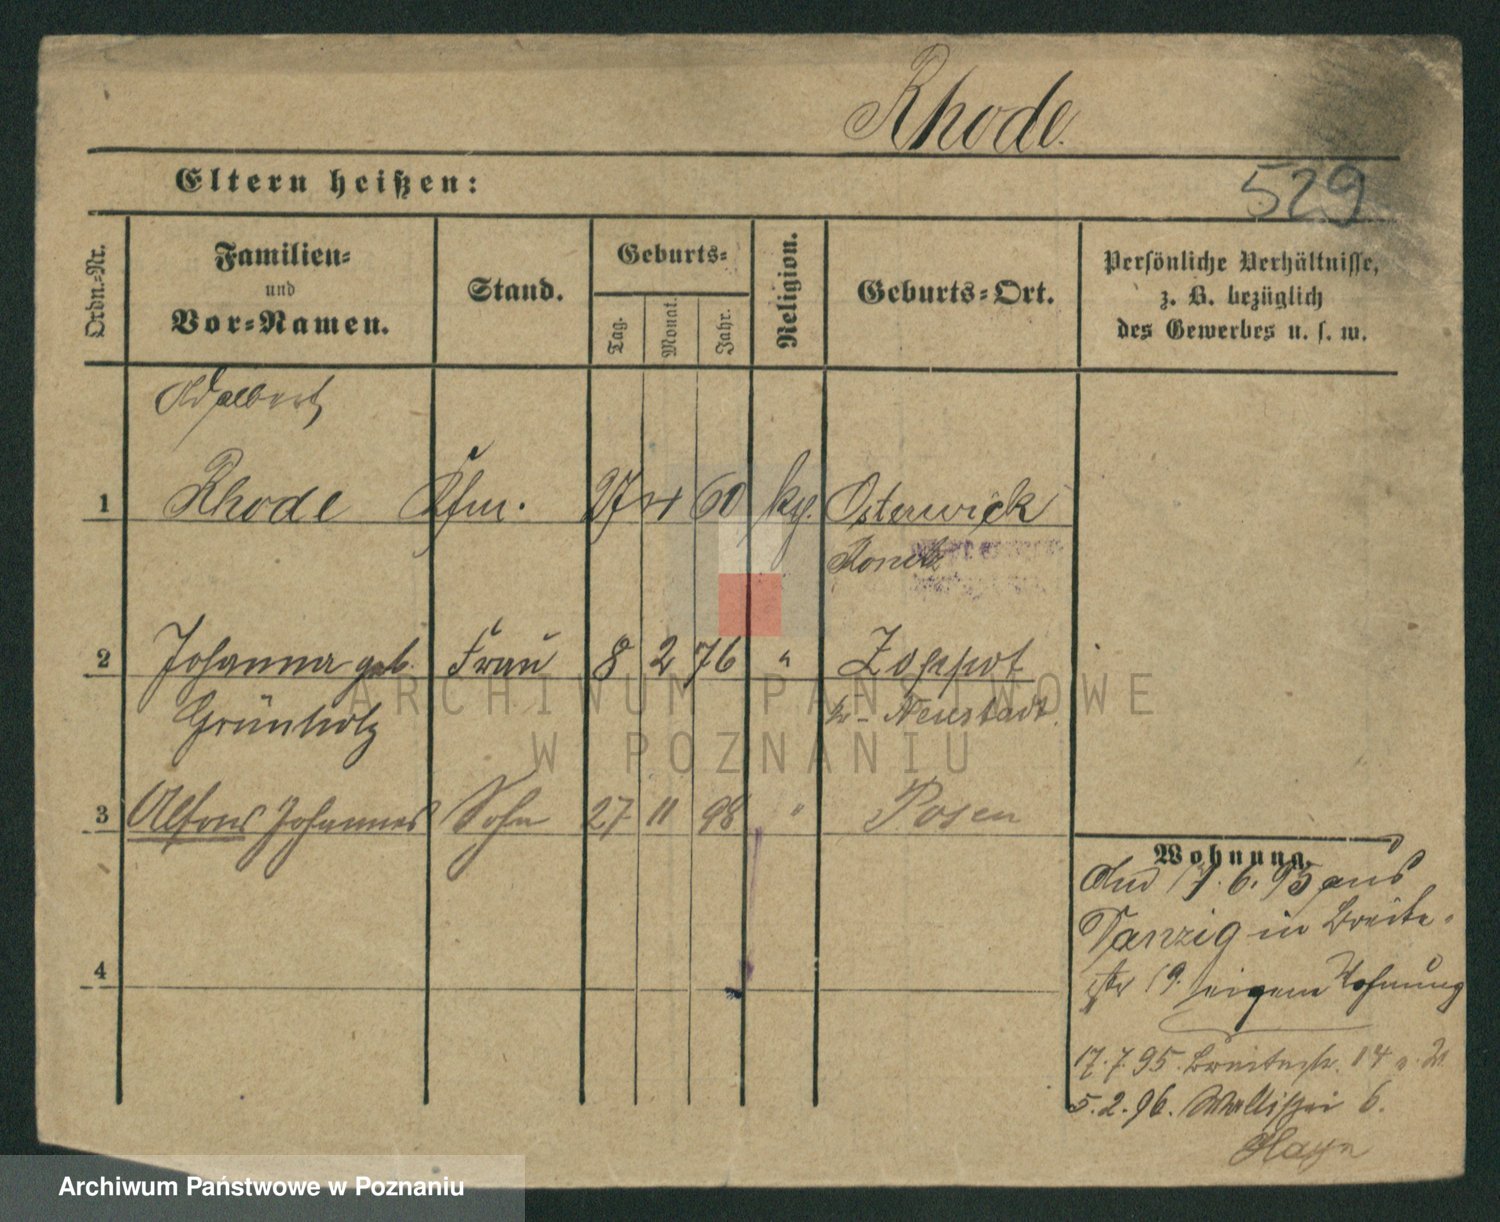 Rhode.
529
Eltern heißen:
Ordn.-Nr.
Familien-
und
Vor-Namen.
Stand.
Geburts-
Tag.
Monat.
Jahr.
Religion.
Geburts-Ort.
Persönliche Verhältnisse,
z. B. bezüglich
des Gewerbes u. s. w.
Adalbert
1 Rhode Kfm. 27 60 Osterwick
Konitz
2 Johanna geb. Frau 8 2 76 " Zoppot
Grünholz Kr. Neustadt.
3 Alfons Johannes Sohn 27 11 98 " Posen
4
Wohnung.
17.6.95 aus
Danzig in Breite-
str 19. eigene Wohnung
17.7.95. Breitestr. 14
5.2.96. Wallischei 6.
ARCHIWUM PAŃSTWOWE
W POZNANIU
Archiwum Państwowe w Poznaniu